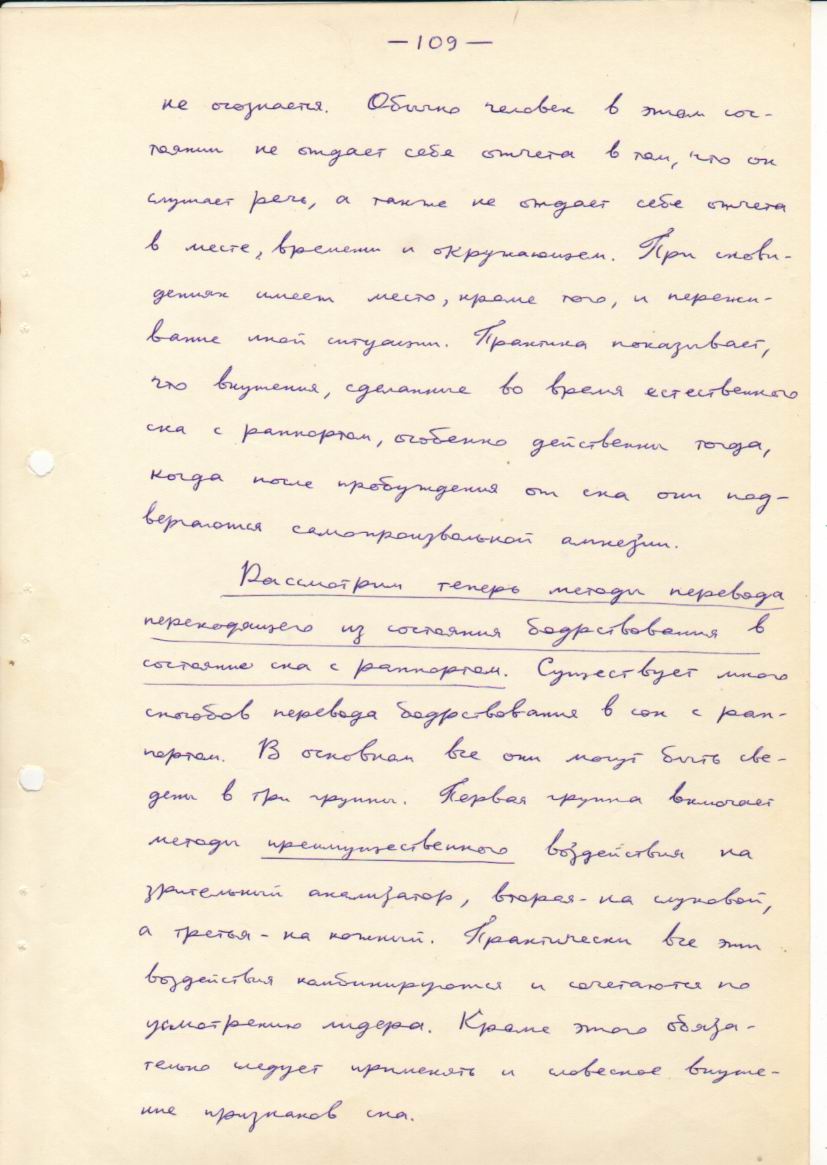 — 109 —
не осознается. Обычно человек в этом сос-
тоянии не отдает себе отчета в том, что он
слушает речь, а также не отдает себе отчета
в месте, времени и окружающем. При снови-
дениях имеет место, кроме того, и пережи-
вание иной ситуации. Практика показывает,
что внушения, сделанные во время естественного
сна с раппортом, особенно действенны тогда,
когда после пробуждения от сна они под-
вергаются самопроизвольной амнезии.
Рассмотрим теперь методы перевода
переходящего из состояния бодрствования в
состояние сна с раппортом. Существует много
способов перевода бодрствования в сон с рап-
портом. В основном все они могут быть све-
дены в три группы. Первая группа включает
методы преимущественного воздействия на
зрительный анализатор, вторая - на слуховой,
а третья - на кожный. Практически все эти
воздействия комбинируются и сочетаются по
усмотрению лидера. Кроме этого обяза-
тельно следует применять и словесное внуше-
ние признаков сна.